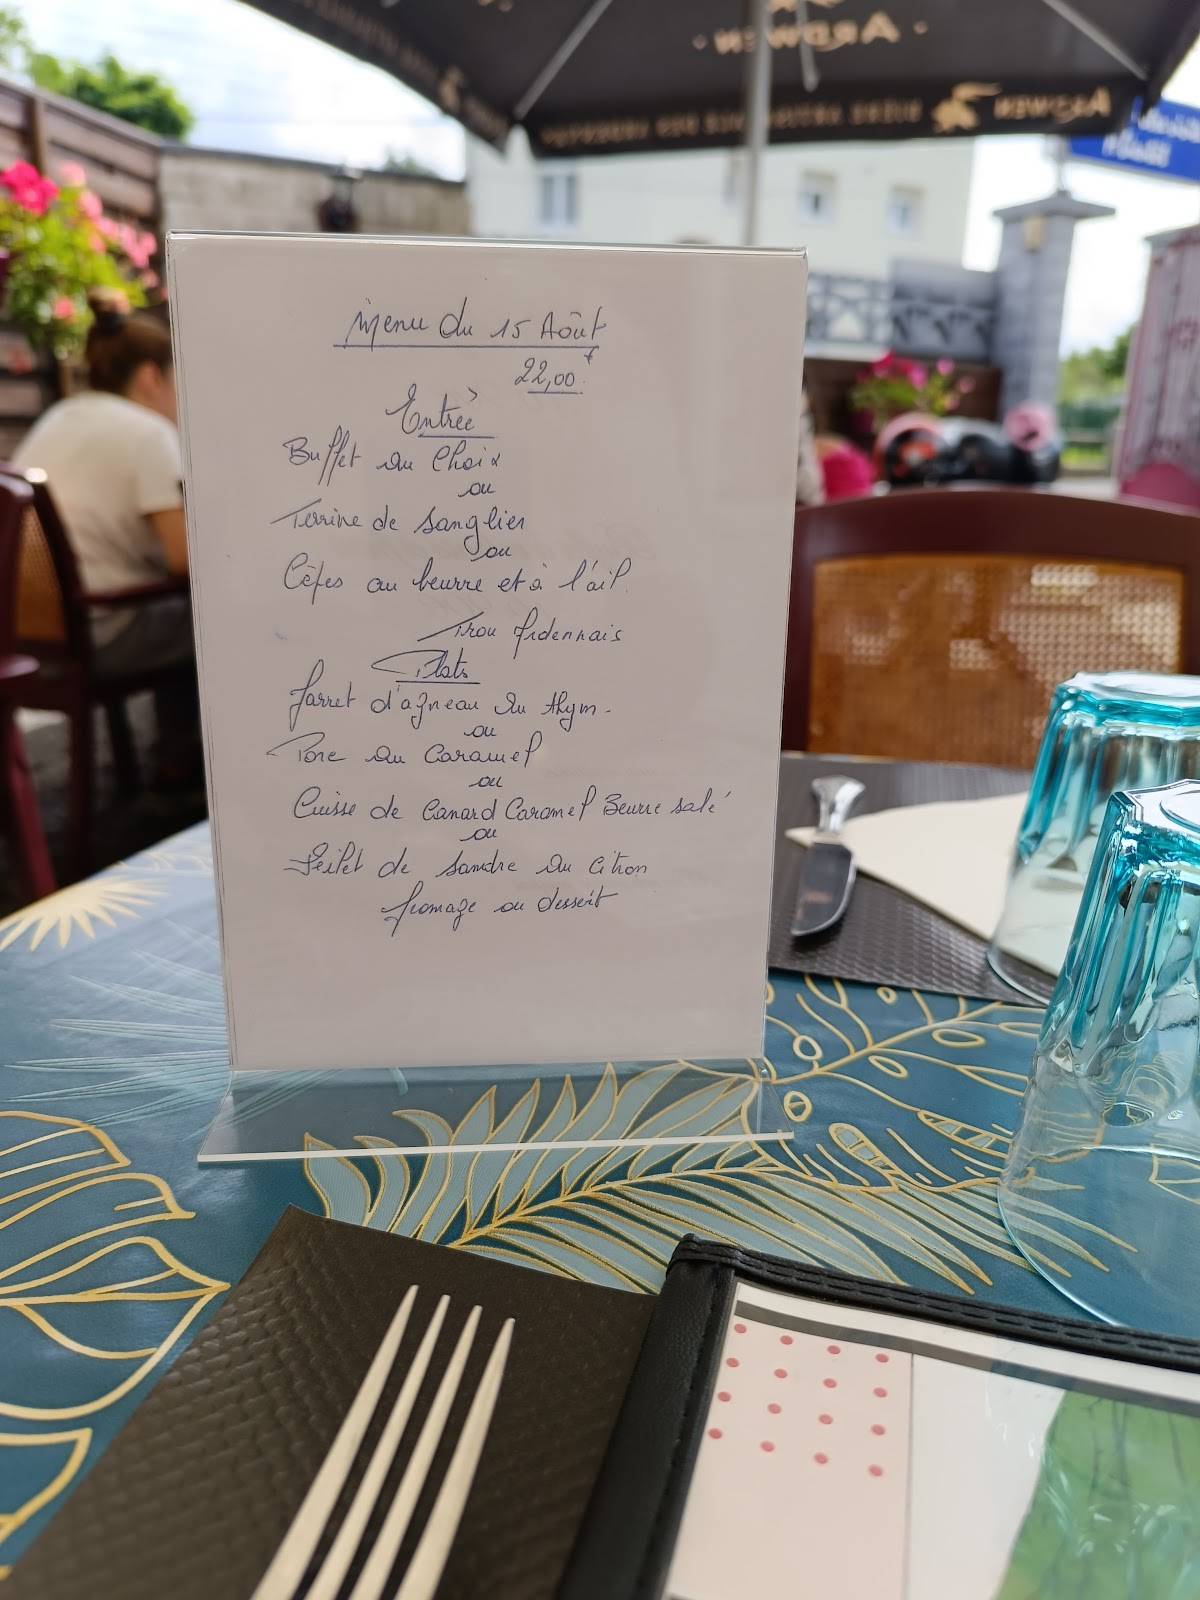 Menu du 15 Août
22,00 €
Entrée
Buffet au Choix
ou
Terrine de sanglier
ou
Cêpes au beurre et à l'ail.
Trou Ardennais
Plats
Jarret d'agneau au thym.
ou
Porc au Caramel
ou
Cuisse de Canard Caramel Beurre salé
ou
Feilet de sandre au citron
fromage ou dessert
ARDWEN
ARDWEN